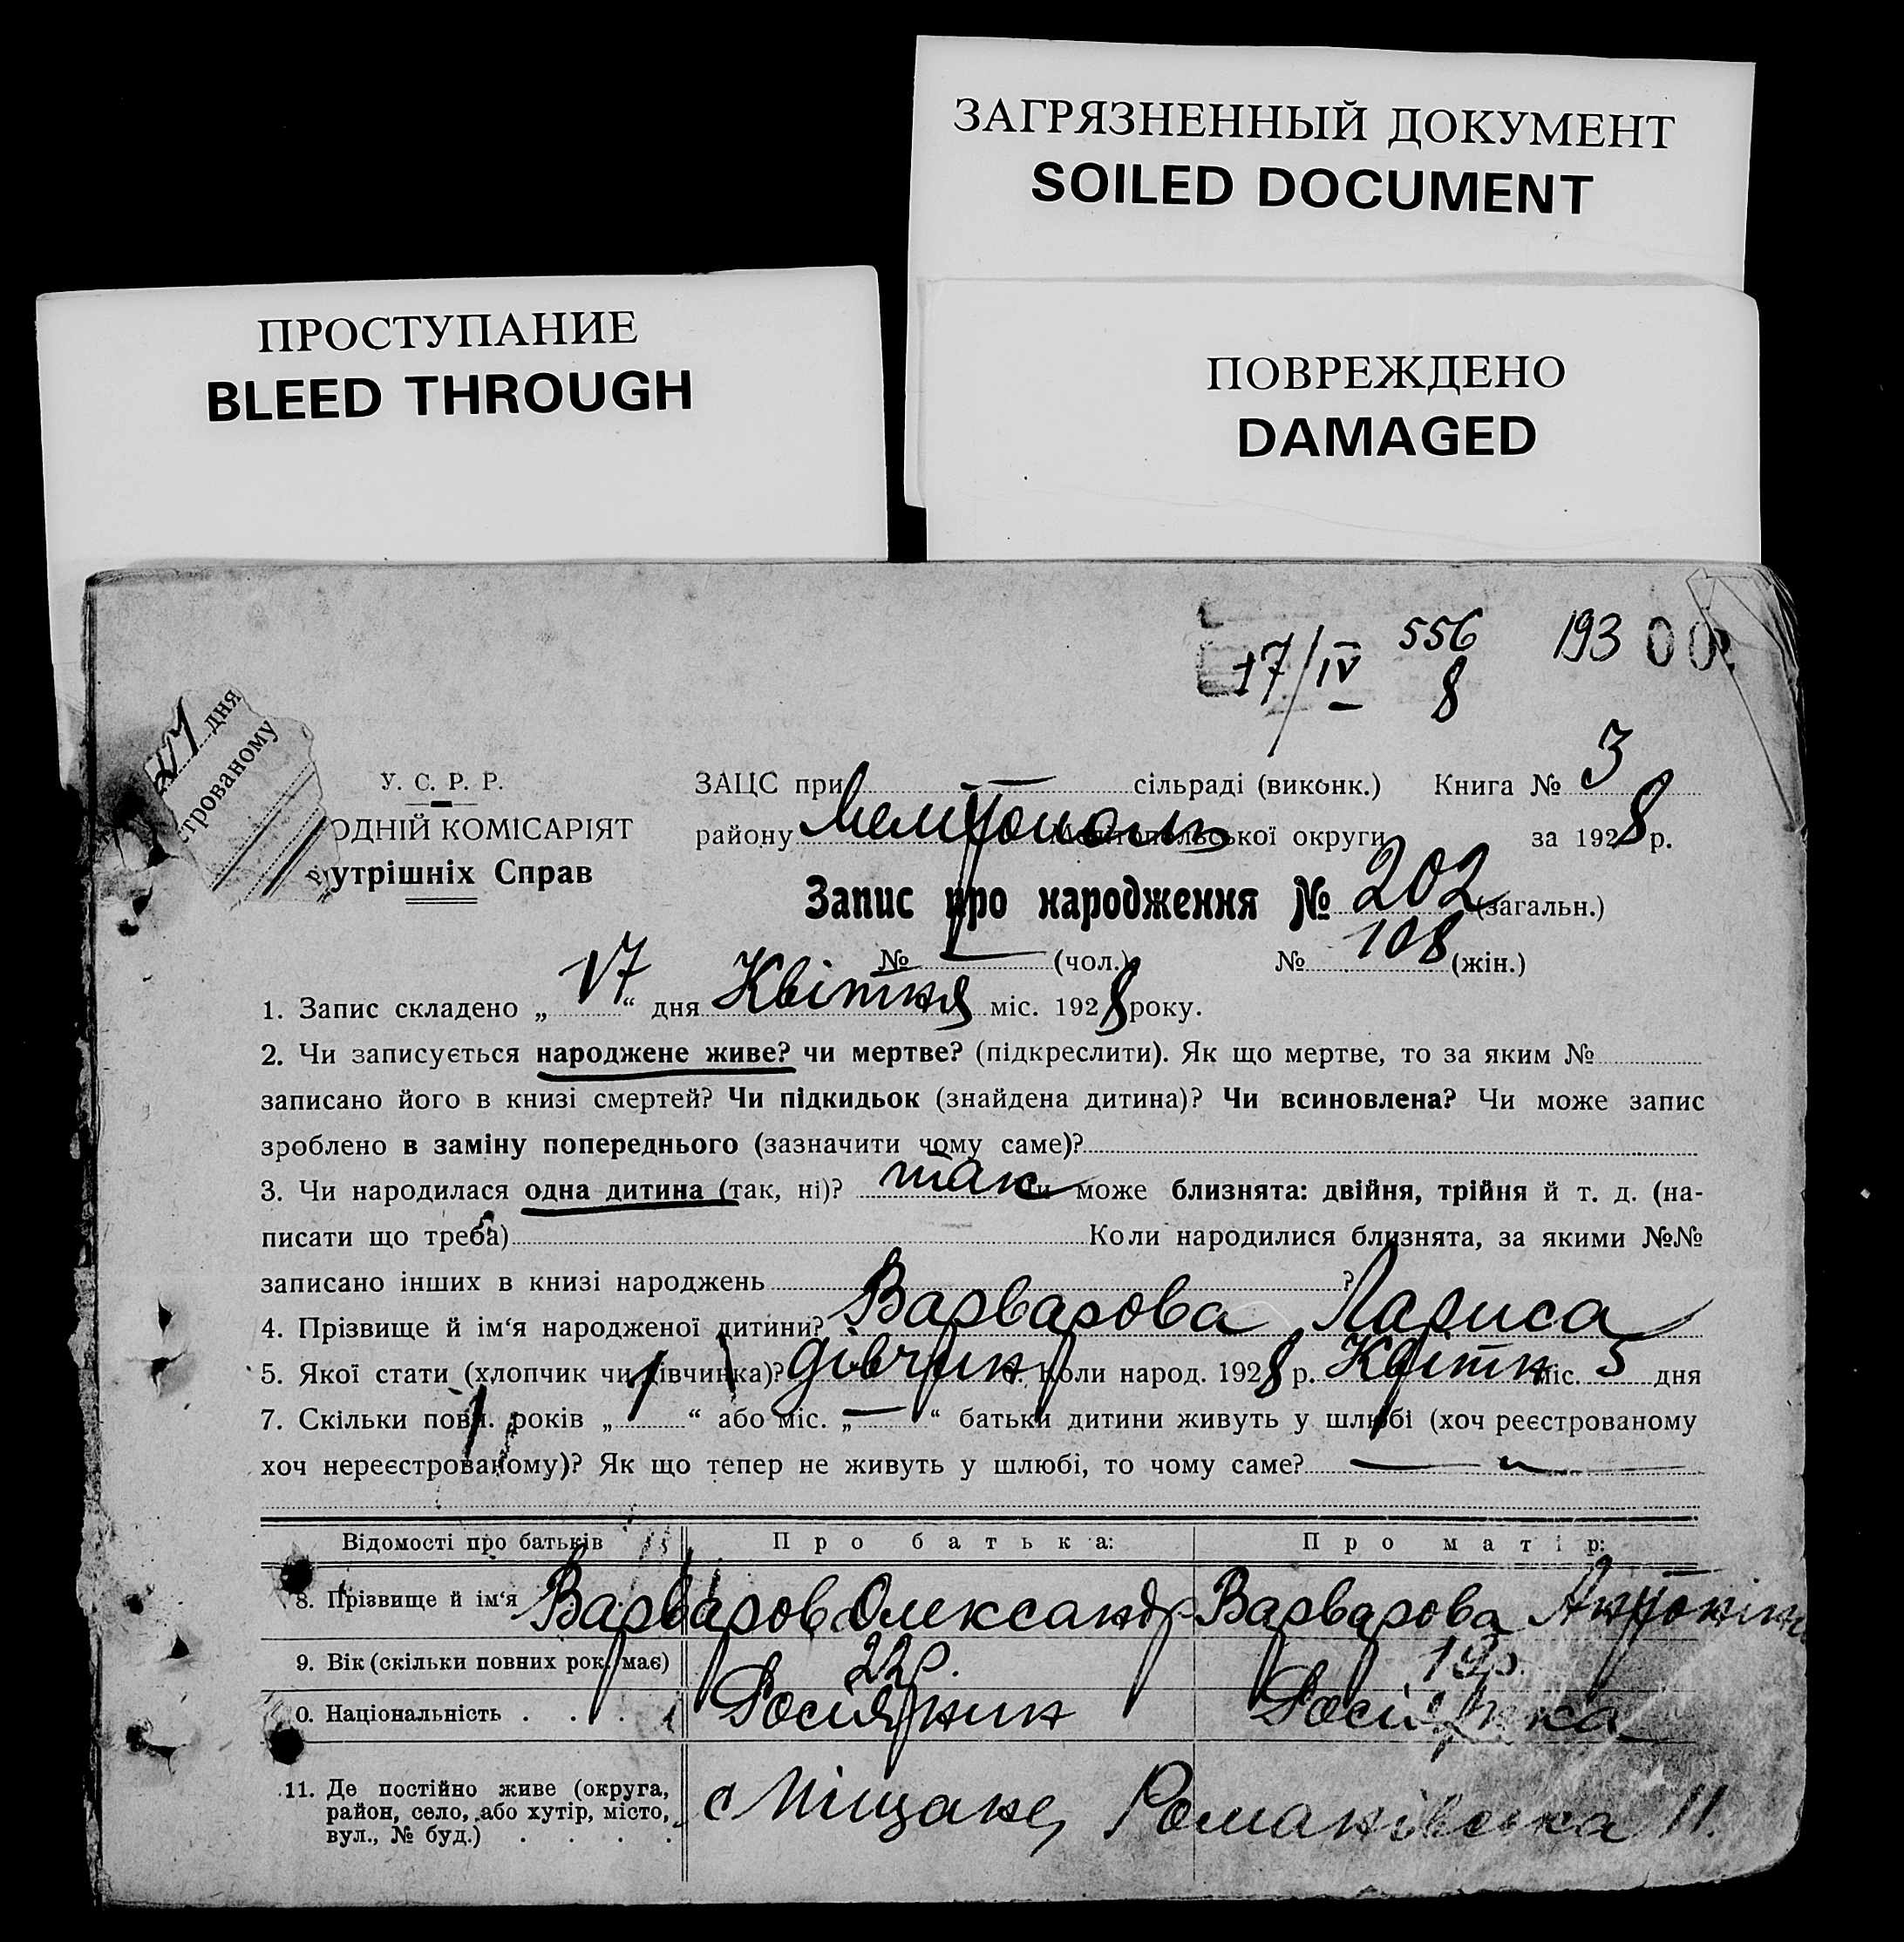 ЗАГРЯЗНЕННЫЙ ДОКУМЕНТ
SOILED DOCUMENT
ПРОСТУПАНИЕ
BLEED THROUGH
ПОВРЕЖДЕНО
DAMAGED
556 193 00
17/IV 8
дня
строваному
У. С. Р. Р.
ОДНІЙ КОМІСАРІЯТ
утрішніх Справ
ЗАЦС при — сільраді (виконк.) Книга № 3
району Мелітополь Мелітопольської округи за 1928 р.
Запис про народження № 202 (загальн.)
№ — (чол.) № 108 (жін.)
1. Запис складено „17“ дня Квітня міс. 1928 року.
2. Чи записується народжене живе? чи мертве? (підкреслити). Як що мертве, то за яким №
записано його в книзі смертей? Чи підкидьок (знайдена дитина)? Чи всиновлена? Чи може запис
зроблено в заміну попереднього (зазначити чому саме)?
3. Чи народилася одна дитина (так, ні)? так Чи може близнята: двійня, трійня й т. д. (на-
писати що треба) Коли народилися близнята, за якими №№
записано інших в книзі народжень ?
4. Прізвище й ім‘я народженої дитини? Варварова Лариса
5. Якої стати (хлопчик чи дівчинка)? дівчинк Коли народ. 1928 р. Квітн міс. 5 дня
7. Скільки повн. років „1“ або міс. „—“ батьки дитини живуть у шлюбі (хоч реєстрованому
хоч нереєстрованому)? Як що тепер не живуть у шлюбі, то чому саме? — „ —
Відомості про батьків Про батька: Про матір:
8. Прізвище й ім‘я Варваров Олександр Варварова Антоніна
9. Вік (скільки повних рок. має) 22р. 19р.
0. Національність . . . . Росіянин Росіянка
11. Де постійно живе (округа,
район, село, або хутір, місто,
вул., № буд.) . . . .
с Міщане, Романівська 11.